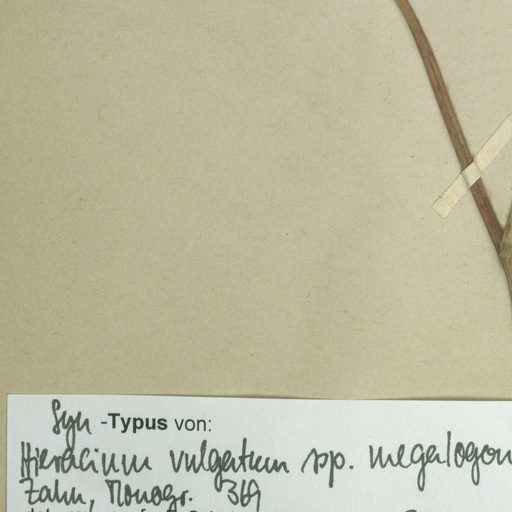 Syn -Typus von:
Hieracium vulgatum sp. megalogon
Zahn, Monogr. 369